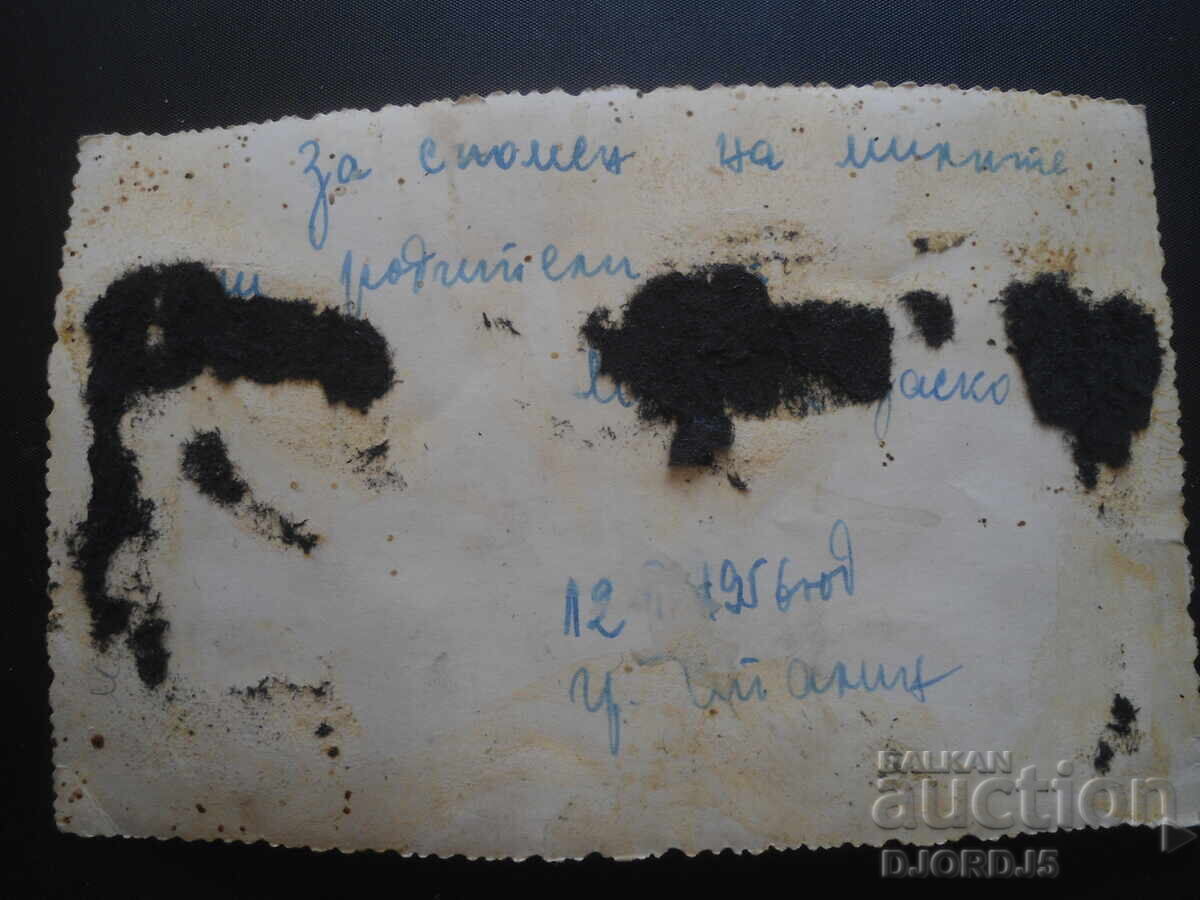 За спомен на милите
ни родители
Васко
12 1956 год
гр. Сталин
BALKAN
auction
DJORDJ5